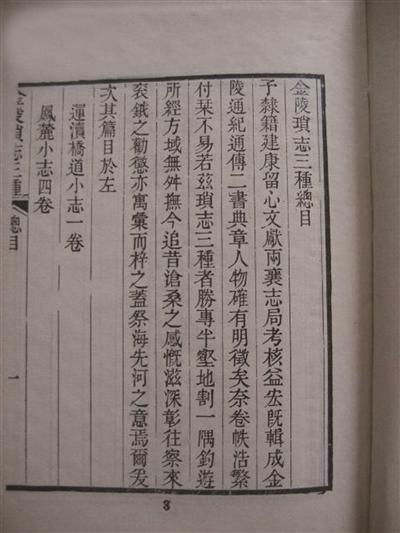 金陵瑣志三種總目
予隸籍建康留心文獻兩襄志局考核益宏旣輯成金
陵通紀通傳二書典章人物確有明徵矣奈卷帙浩繁
付栞不易若茲瑣志三種者勝專半壑地割一隅釣遊
所經方域無舛撫今追昔滄桑之感慨滋深彰往察來
袞鉞之勸懲亦寓彙而梓之蓋祭海先河之意焉爾爰
次其篇目於左
運瀆橋道小志一卷
鳳麓小志四卷
金陵瑣志三種
總目
一
3